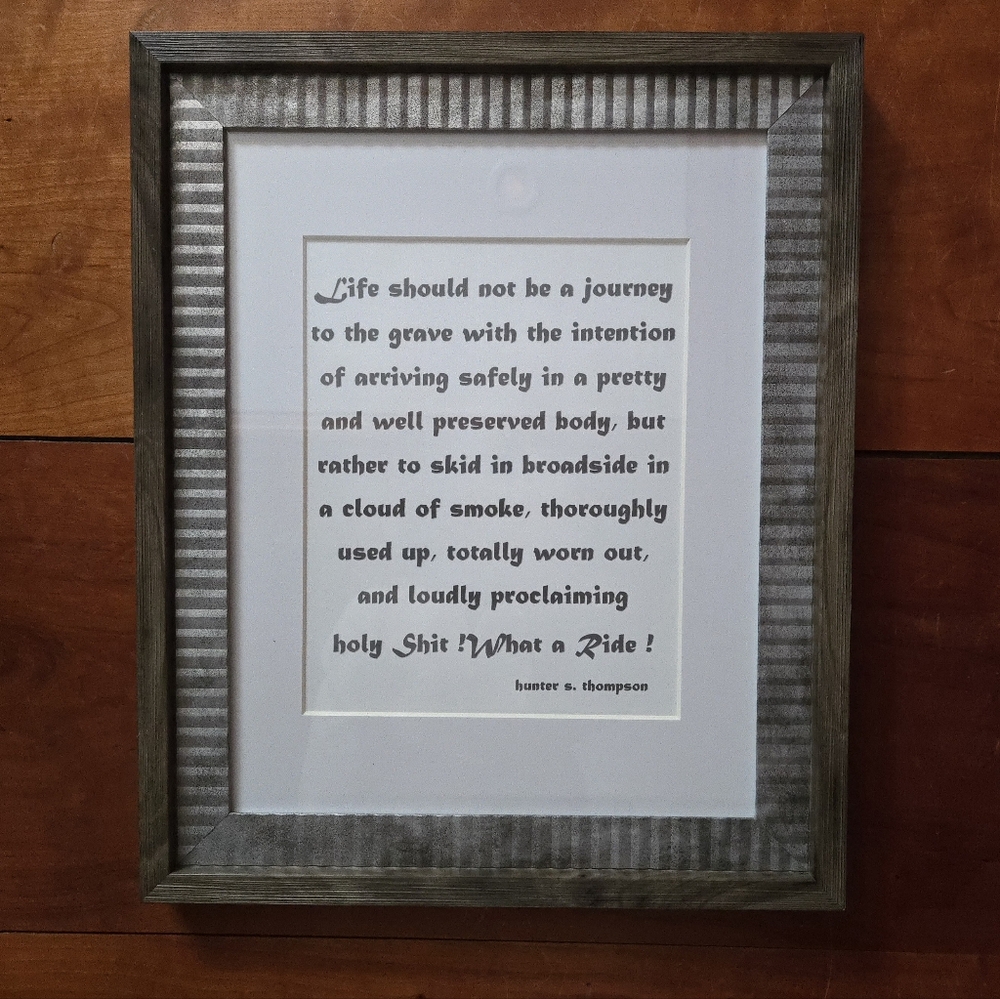 Life should not be a journey
to the grave with the intention
of arriving safely in a pretty
and well preserved body, but
rather to skid in broadside in
a cloud of smoke, thoroughly
used up, totally worn out,
and loudly proclaiming
holy Shit !What a Ride !
hunter s. thompson